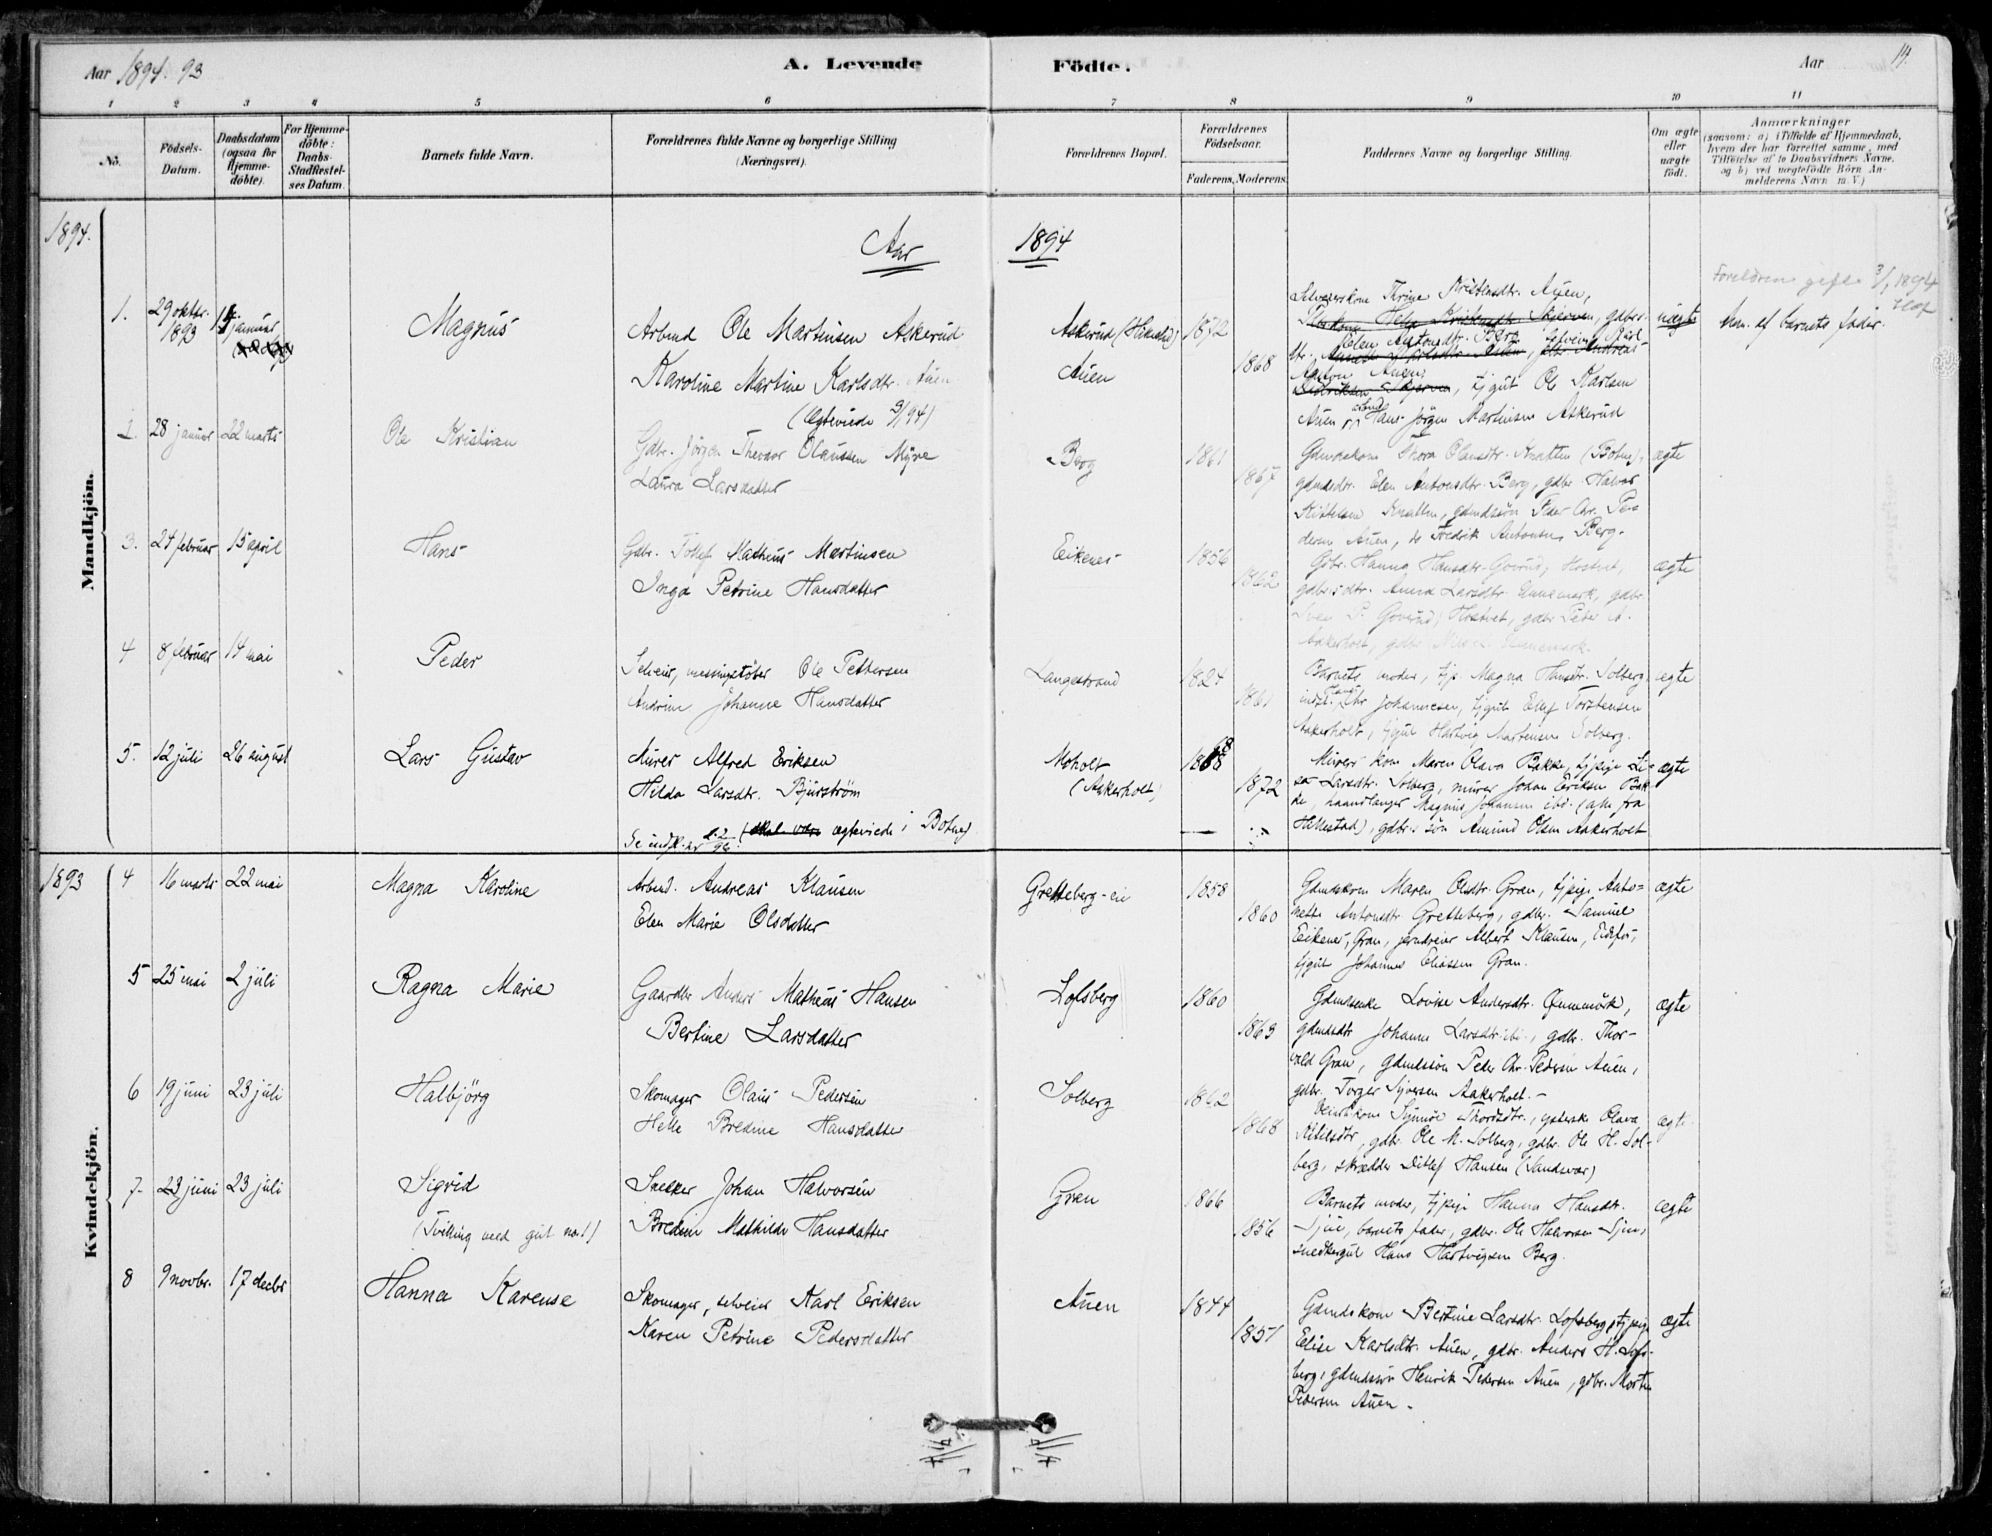 Aar 1894. 93
A. Levende
Födte.
Aar
14.
1 2 3 4 5 6 7 8 9 10 11
No.
Födsels-Datum.
Daabsdatum (ogsaa for hjemme-döbte).
For Hjemme-döbte: Daabs-Stadfæstel-ses Datum.
Barnets fulde Navn.
Forældrenes fulde Navne og borgerlige Stilling (Næringsvei).
Forældrenes Bopæl.
Forældrenes Födselsaar.
Faderens. Moderens.
Faddernes Navne og borgerlige Stilling.
Om ægte eller uægte födt.
Anmærkninger
(saasom: a) i Tilfælde af Hjemmedaab, hvem der har forrettet samme, med Tilföielse af to Daabsvidners Navne. og b) ved uægtefödte Börn An-melderens Navn m. V.)
1894.
Aar 1894
Mandkjön.
1. 29 oktbr. 1893
januar
Magnus
Arbmd Ole Martinsen Askerud
Karoline Martine Karlsdtr. Auen
(Ægteviede 3/1 94)
Askerud (Hillestad)
Auen
1872
1868
Selveierkone Thrine Kristensdtr. Auen,
Elen Antonsdtr. Berg
Anton Auen, tjgut Ole Karlsen
Auen, arbmd Hans Jörgen Martinsen Askerud
uægte
Foreldren gifte 3/1 1894
Anm. af barnets fader.
2. 28 januar 22 marts
Ole Kristian
Gdbr. Jörgen Thevdor Olaussen Myre
Laura Larsdatter
Berg
1861
1867
Gdmdskone Thora Olausdtr. Knatten (Botne),
gdmdsdtr. Elen Antonsdtr. Berg, gdbr. Halvor
Kittelsen Knatten, gdmdssön Peder Chr. Pe-
dersen Auen, do Fredrik Antonsen Berg.
ægte
3. 24 februar 15 april
Hans
Gdbr. Tollef Matheus Martinsen
Inga Petrine Hansdatter
Eikenes
1856
1862
Gdbr. Hanna Hansdtr. Goverud, Hostvet,
gdbrsdtr. Anna Larsdtr. Ennemark, gdbr.
P. Goverud, Hostvet, gdbr Peder A.
Aakerholt, gdbr. Nils L. Ennemark.
ægte
4 8 februar 14 mai
Peder
Selveier, messingstöber Ole Pettersen
Andrine Johanne Hansdatter
Langestrand
1824
1861
Barnets moder, tjp. Magna Hansdtr. Solberg,
Johannesen, tjgut Elef Torstensen
Aakerholt, tjgut Hartvig Martinsen Solberg.
ægte
5. 12 juli 26 august
Lars Gustav
Murer Alfred Eriksen
Hilda Larsdtr. Bjürström
ægteviede i Botne)
Moholt
(Aakerholt)
1868
1872
Murers kone Maren Olava Bakke, tjpige Li-
sa Larsdtr. Solberg, murer Johan Eriksen Bak-
ke, haandlanger Magnus Johansen ibd. (alle fra
Hillestad), gdbr.s sön Amund Olsen Aakerholt
ægte
1893
Kvindekjön.
4 16 marts 22 mai
Magna Karoline
Arbmd. Andreas Klausen
Elen Marie Olsdatter
Gretteberg-eie
1858
1860
Gdmdskone Maren Olsdtr. Gran, tjpige Anto=
nette Antonsdtr Gretteberg, gdbr. Samuel
Eikenes, Gran, jerndreier Albert Klausen, Eidsfos,
tjgut Johannes Eliassen Gran.
ægte
5 25 mai 2 juli
Ragna Marie
Gaardbr Anders Matheus Hansen
Bertine Larsdatter
Lofsberg
1860
1863
Gdmdsenke Lovise Andersdtr. Ennemark,
gdmdsdtr Johanne Larsdtr. ibd., gdbr. Thor-
vald Gran, gdmdssön Peder Chr. Pedersen Auen,
gdbr. Torger Syversen Aakerholt.
ægte
6 19 juni 23 juli
Halbjörg
Skomager Olaus Pedersen
Helle Bredine Hansdatter
Solberg
1862
1868
Synnöve Thordsdtr., Olava
Kittelsdtr, gdbr. Ole M. Solberg, gdbr. Ole H. Sol-
berg, skrædder Ditlef Hansen (Sandsvær)
ægte
7. 23 juni 23 juli
Sigrid
(Tvilling med gut no. 1)
Snekker Johan Halvorsen
Bredine Mathilde Hansdatter
Gran
1866
1856
Barnets moder, tjpige Hanna Hansdtr.
barnets fader, gdbr. Ole Halvorsen
snedkergut Hans Hartvigsen Berg.
ægte
8 9 novbr. 17 decbr
Hanna Karense
Skomager, selveier Karl Eriksen
Karen Petrine Pedersdatter
Auen
1844
1851
Gdmdskone Bertine Larsdtr. Lofsberg, tjpige
Elise Karlsdtr. Auen, gdbr. Anders H. Lofs-
berg, gdmdssön Henrik Pedersen Auen, gdbr. Morten
Pedersen Auen.
ægte